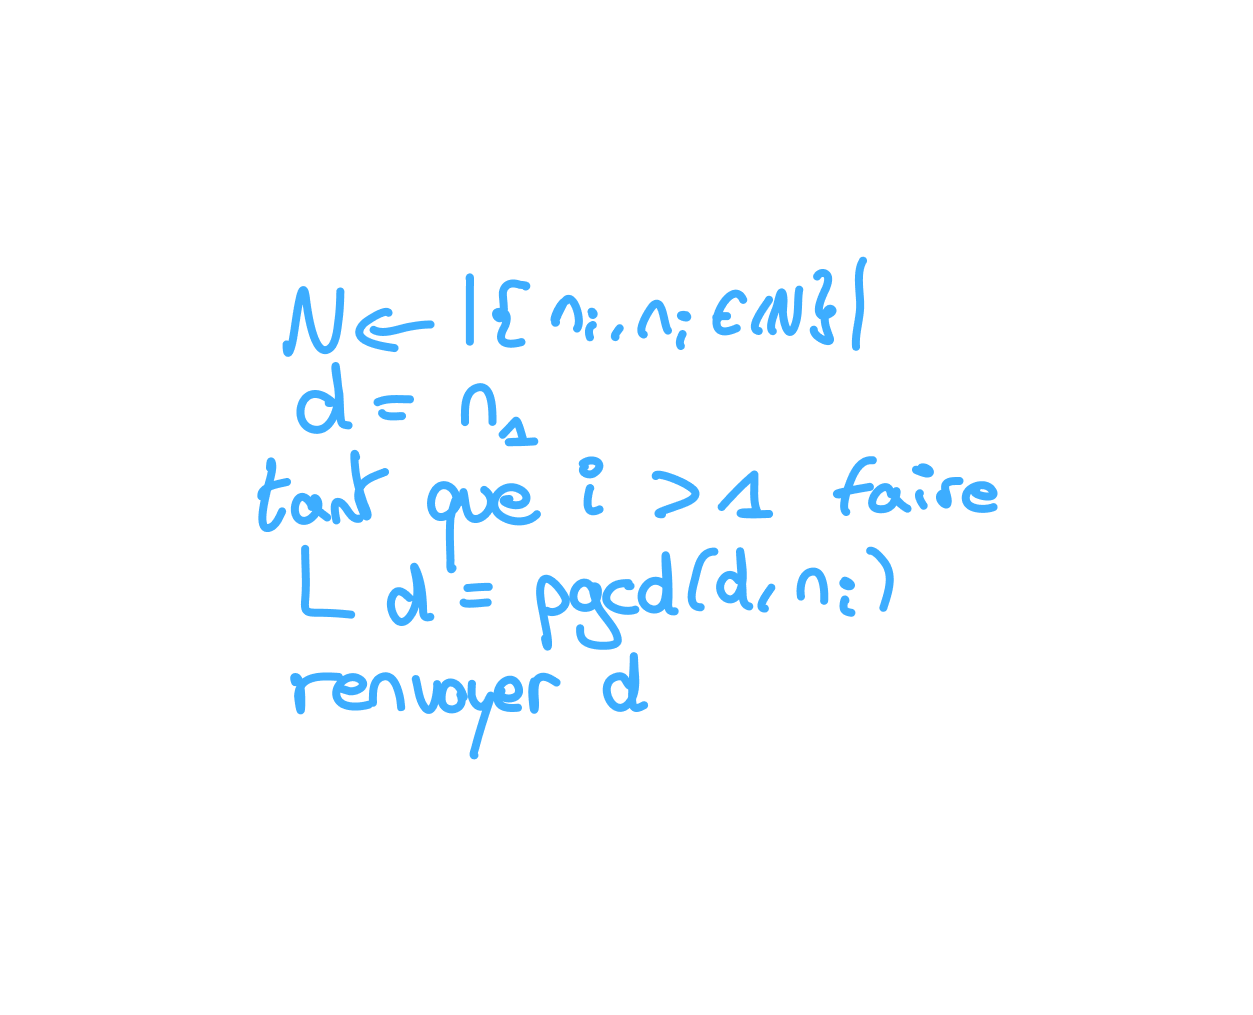 N ← |{n_i, n_i ∈ ℕ}|
d = n_1
tant que i > 1 faire
L d = pgcd(d, n_i)
renvoyer d